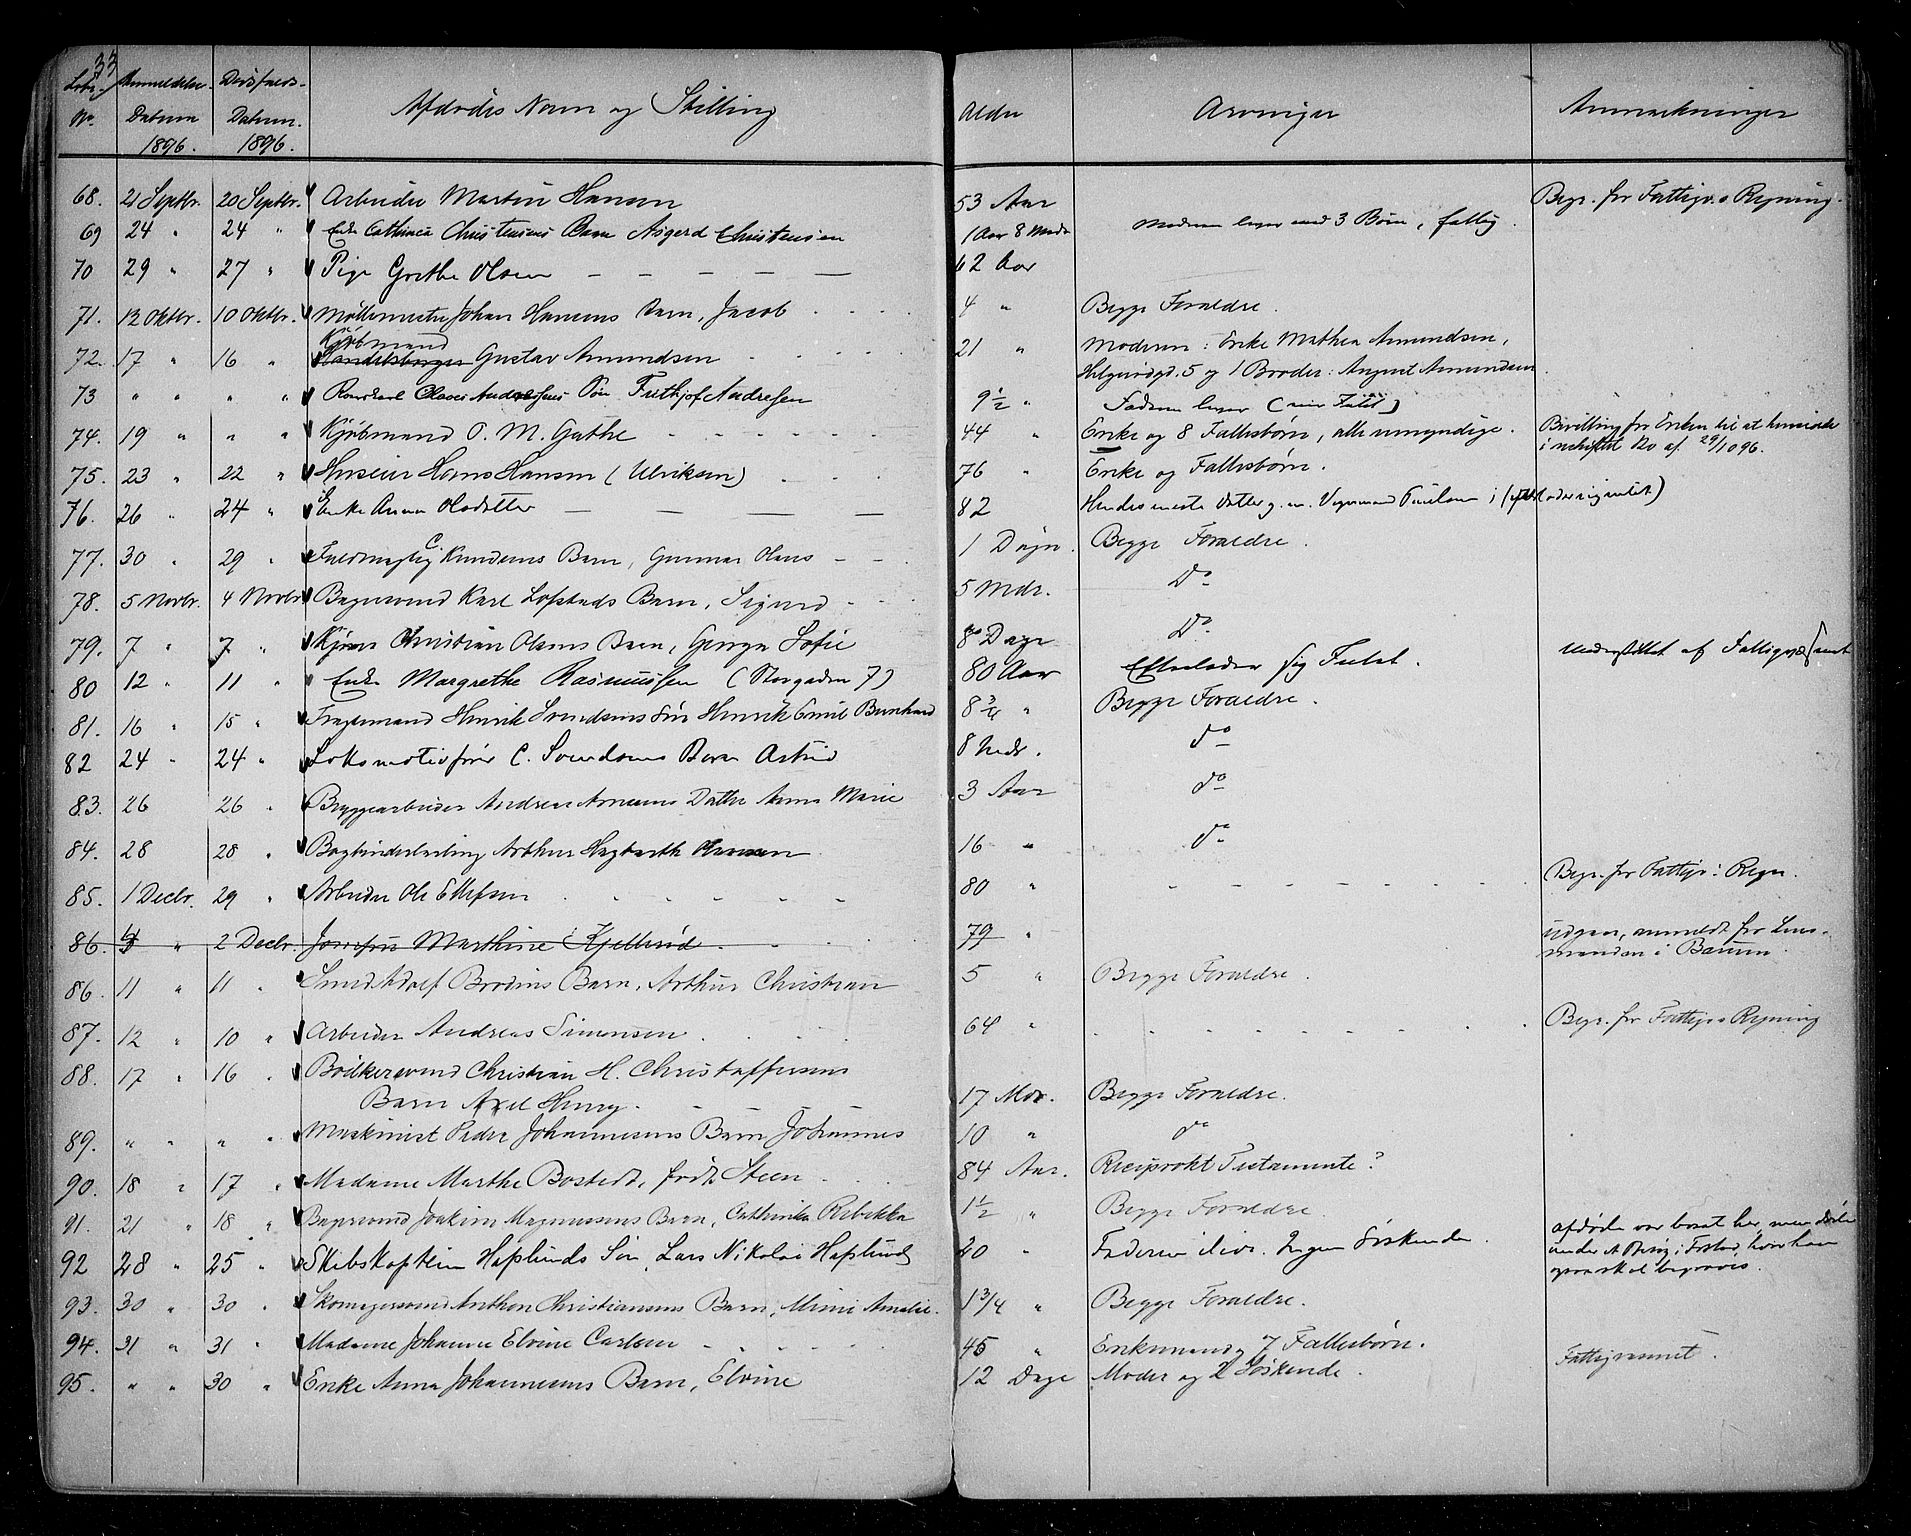 33
Løbe- Anmeldelses- Dødsfalds- Afdødes Navn og Stilling Alder Arvinger Anmærkninger
No. Datum Datum.
1896. 1896.
68. 21 Septbr. 20 Septbr. Arbeider Martin Hansen 53 Aar Begr. for Fattigv.s Regning.
69 24 " 24 " Enke Cathinca Christensens Barn Asgerd Christensen 1 Aar 8 Mndr Moderen lever med 3 Børn, fattig.
70 29 " 27 " Pige Grethe Olsen — — — — — 62 Aar
71. 12 Oktbr. 10 Oktbr. Møllermester Johan Hansens Barn, Jacob 4 " Begge Forældre.
Kjøbmand
72. 17 " 16 " Handelsborger Gustav Amundsen 21 " Moderen: Enke Mathea Amundsen,
5 og 1 Broder: August Amundsen
73 " " " " Olaves Andresens Søn Frithjof Andresen 9½ " Faderen lever
74. 19 " " " Kjøbmand O. M. Gathe 44 " Enke og 8 Fællesbørn, alle umyndige. Bevilling for Enken til at hensidde
i uskiftet Bo af 29/10 96.
75. 23 " 22 " Huseier Hans Hansen (Ulriksen) 76 " Enke og Fællesbørn.
76. 26 " 24 " Enke Anna Olsdatter — — — — 82 Hendes Datter g. m. Vognmand
77. 30 " 29 " Fuldmægtig C Knudsens Barn, Gunnar Hans — — 1 Døgn. Begge Forældre.
78. 5 Novbr. 4 Novbr. Bagersvend Karl Løfstads Barn, Sigurd 5 Mdr. Do
79. 7 " 7 " Christian Olsens Barn, Georga Sofie 8 Dage Do
80 12 " 11 " Enke Margrethe Rasmussen (Storgaden 7) 80 Aar Efterlader sig Intet. Understøttet af Fattigvæsenet
81. 16 " 15 " Fragtemand Henrik Svendsens Søn Henrik Emil Bernhard 8¾ " Begge Forældre.
82 24 " 24 " Lokomotivfører C. Svendsens Barn Astrid 8 Mdr. do
83. 26 26 " Bryggearbeider Andreas Arnesens Datter Anna Marie 3 Aar do
84. 28 28 " Bogbinderlærling Arthur Hagbarth Hansen 16 " do
85. 1 Decbr. 29 " Arbeider Ole Ellefsen 80 " Begr. for Fattigv: Regn.
86. 4 " 2 Decbr. Jomfru Marthine Kjellerød 79 " udgaar, anmeldt for Lens-
manden i Bærum.
86. 11 " 11 " Smed Adolf Brodins Barn, Arthur Christian 5 " Begge Forældre.
87. 12 " 10 " Arbeider Andreas Simensen 64 " Begr. for Fattigv.s Regning
88. 17 " 16 " Bødkersvend Christian H. Christoffersens
Barn Axel Henry. 17 Mdr. Begge Forældre.
89. " " " " Maskinist Peder Johannesens Barn Johannes 10 " do
90. 18 " 17 " Madame Marthe Bostedt, født Steen 84 Aar. Reciprokt Testamente?
91. 21 " 18 " Bagersvend Joakim Magnussens Barn, Cathinka Rebekka 1½ " Begge Forældre.
92 28 " 25 " Skibskaptein Haslunds Søn, Lars Nikolai Haslund 20 " Faderen i live. Ingen Søskende. afdøde var bosat her, men døde
under et Besøg i hvor han
ogsaa skal begraves.
93. 30 " 30 " Skomagersvend Anthon Christiansens Barn, Mimi Amalie. 1¾ " Begge Forældre.
94. 31 " 31 " Madame Johanne Elvine Carlsen 45 " Enkemand og 7 Fællesbørn.
95. " " 30 " Enke Anna Johannesens Barn, Elvine 12 Dage Moder og 2 Søskende. Fattigvæsenet.